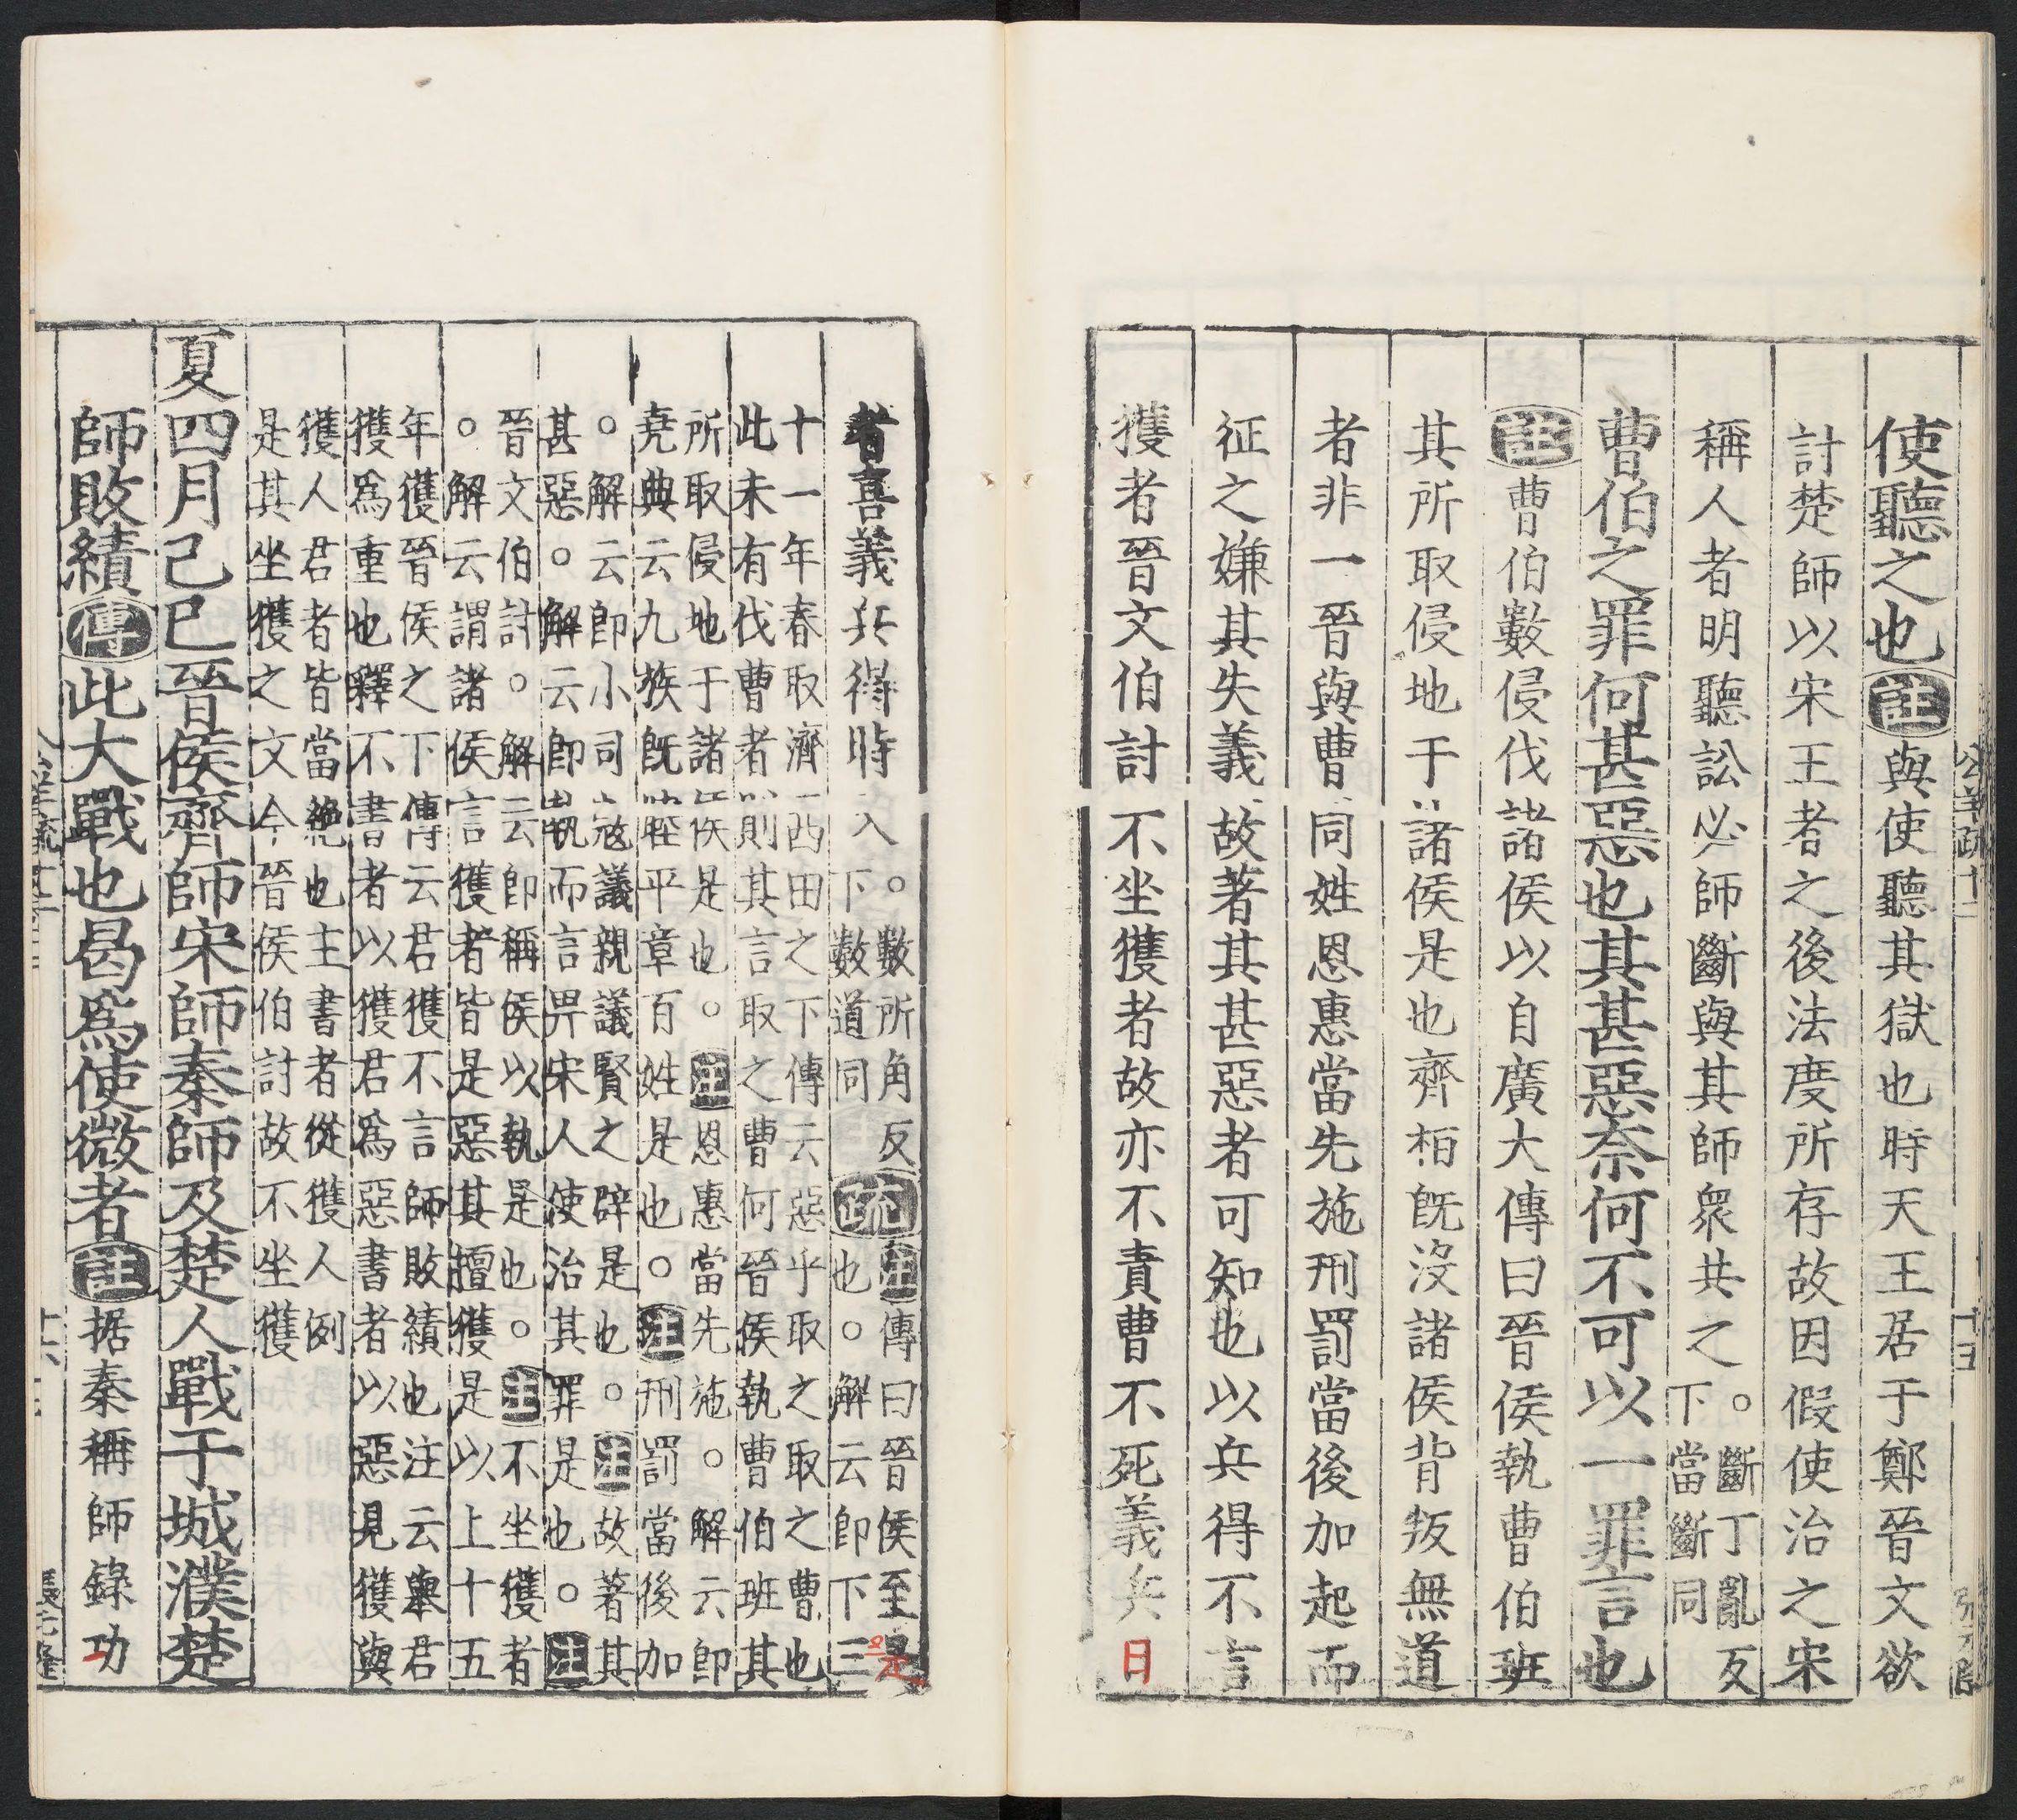 使聽之也註與使聽其獄也時天王居于鄭晉文欲
討楚師以宋王者之後法度所存故因假使治之宋
稱人者明聽訟必師斷與其師衆共之。斷丁亂反
下當斷同
曹伯之罪何甚惡也其甚惡奈何不可以一罪言也
註曹伯數侵伐諸侯以自廣大傳曰晉侯執曹伯班
其所取侵地于諸侯是也齊桓既沒諸侯背叛無道
者非一晉與曹同姓恩惠當先施刑罰當後加起而
征之嫌其失義故著其甚惡者可知也以兵得不言
獲者晉文伯討不坐獲者故亦不責曹不死義兵日
者喜義兵得時入。數所角反
下數道同
疏註傳曰晉侯至是
也。解云即下三
十一年春取濟西田之下傳云惡乎取之取之曹也
此未有伐曹者則其言取之曹何晉侯執曹伯班其
所取侵地于諸侯是也。註恩惠當先施。解云即
堯典云九族既睦平章百姓是也。註刑罰當後加
。解云即小司寇議親議賢之辟是也。註故著其
甚惡。解云即執而言畀宋人使治其罪是也。註
晉文伯討。解云即稱侯以執是也。註不坐獲者
。解云謂諸侯言獲者皆是惡其擅獲是以上十五
年獲晉侯之下傳云君獲不言師敗績也注云舉君
獲爲重也釋不書者以獲君爲惡書者以惡見獲與
獲人君者皆當絶也主書者從獲人例
是其坐獲之文今晉侯伯討故不坐獲
夏四月己巳晉侯齊師宋師秦師及楚人戰于城濮楚
師敗績傳此大戰也曷爲使微者註据秦稱師錄功